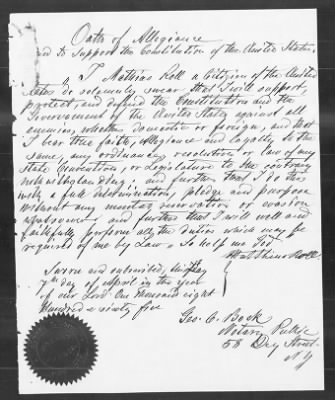 Oath of Allegiance
and to support the Constitution of the United States.
I Mathias Roll a Citizen of the United
States do solemnly swear that I will support,
protect, and defend the Constitution and the
Government of the United States against all
enemies, whether domestic or foreign, and that
I bear true faith, allegiance and loyalty to the
same, any ordinance, resolution or law of any
State Convention, or Legislature to the contrary
notwithstanding; and further that I do this
with a full determination, pledge and purpose
without any mental reservation or evasion
whatsoever; and further that I will well and
faithfully perform all the duties which may be
required of me by Law. So help me God
Matthias Roll
Sworn and subscribed, this
7th day of April in the year
of our Lord One thousand eight
Hundred & sixty five
Geo. C. Bock
Notary Public
58 Dey Street
N.Y.